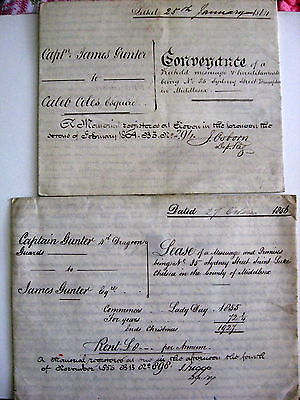 Dated 25th January
Captn. James Gunter
to
Caleb Coles Esquire
Conveyance of a
Freehold messuage & hereditaments
being No. 35 Sydney Street Brompton
in Middlesex
A Memorial registered at Eleven in the forenoon the
of February
Osborn
Dated 27
Captain Gunter 4th Dragoon
Guards
to
James Gunter Esqre
Lease of a Messuage and Premises
being No. 35 Sydney Street Saint Lukes
Chelsea in the County of Middlesex
Commences Lady Day 1855
For years 72 3/4
Ends Christmas 1927
Rent £ per Annum
A Memorial registered at one in the afternoon the fourth
of November